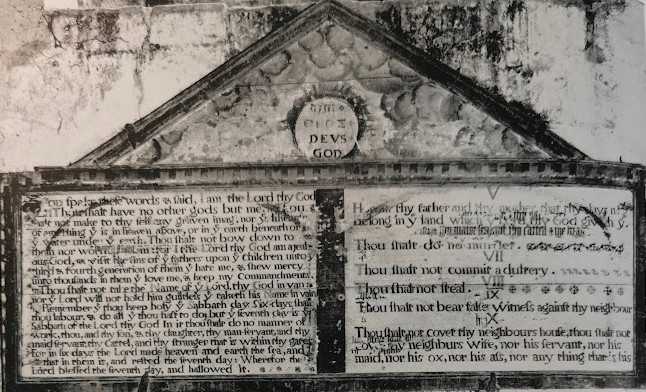 DEVS
GOD
God spake these words & said, I am the Lord thy God
Thou shalt have no other gods but me. Thou
shalt not make to thy self any graven image, nor yͤ likeness
of any thing yͭ is in heaven above, or in yͤ earth beneath or
yͤ water under yͤ earth. Thou shalt not bow down to
them nor worship them: for I the Lord thy God am a jeal-
ous God, & visit the sins of yͤ fathers upon yͤ Children unto yͤ
third & fourth generation of them yͭ hate me, & shew mercy
unto thousands in them yͭ love me, & keep my Commandments.
Thou shalt not take the Name of yͤ Lord thy God in vain:
for yͤ Lord will not hold him guiltless yͭ taketh his Name in vain
Remember thou keep holy yͤ Sabbath day. Six days thou
labour, & do all yͭ thou hast to do; but yͤ seventh day is yͤ
Sabbath of the Lord thy God. In it thou shalt do no manner of
work, thou, and thy son, & thy daughter, thy man servant, and thy
maid servant, thy Cattel, and thy stranger that is within thy gates
For in six days the Lord made heaven and earth the sea, and
all that in them is, and rested the seventh day: Wherefore the
Lord blessed the seventh day, and hallowed it.
V
thy father and thy mother that thy days
long in yͤ land thy God yͤ
Thou shalt do no murder.
VII
Thou shalt not commit adultery.
VIII
Thou shalt not steal.
IX
Thou shalt not bear false Witness against thy neighbour
X
Thou shalt not covet thy neighbours house, thou shalt not
thy neighburs Wife, nor his servant, nor his
maid, nor his ox, nor his ass, nor any thing that is his